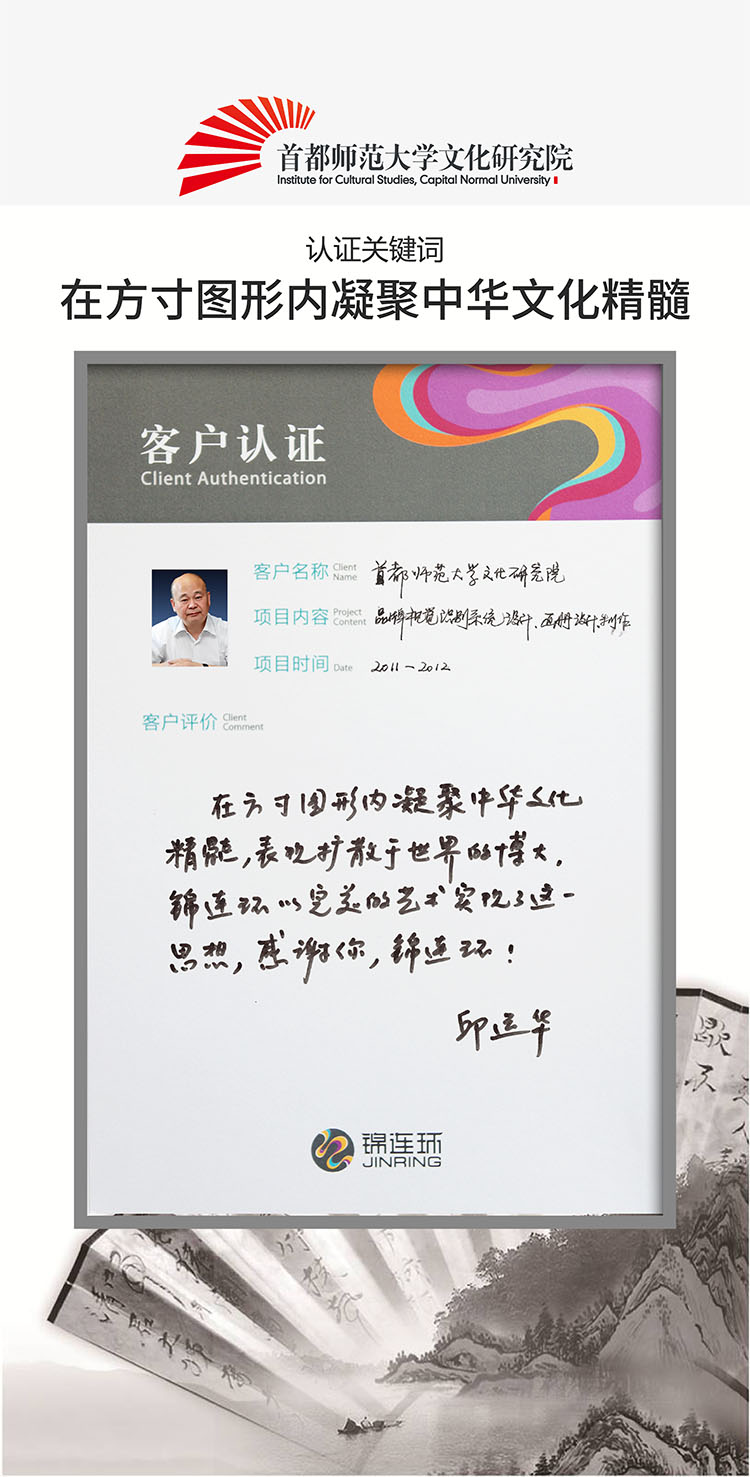 首都师范大学文化研究院
Institute for Cultural Studies, Capital Normal University
认证关键词
在方寸图形内凝聚中华文化精髓
客户认证
Client Authentication
客户名称 Client Name 首都师范大学文化研究院
项目内容 Project Content 品牌视觉识别系统设计、画册设计制作
项目时间 Date 2011-2012
客户评价 Client Comment
在方寸图形内凝聚中华文化
精髓,表现扩散于世界的博大,
锦连环以完美的艺术实现了这一
思想,感谢你,锦连环!
邱运华
锦连环
JINRING